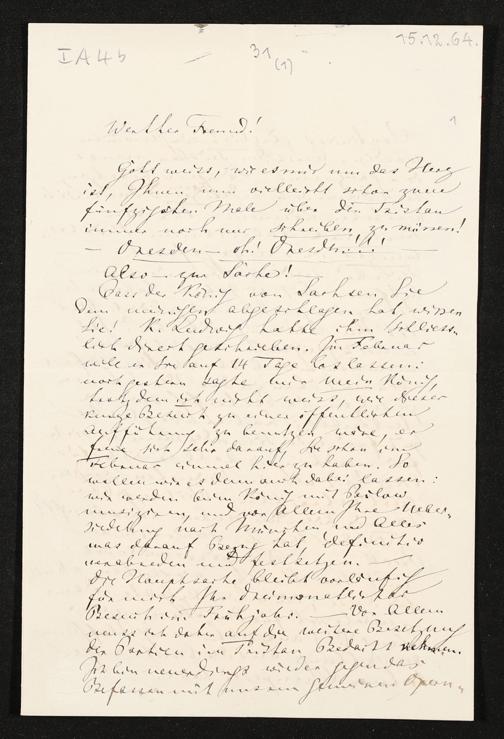 I A 4 b
31
(1)
15.12.64.
1
Werther Freund!
Gott weiss, wie es mir um das Herz
ist, Ihnen nun vielleicht schon zum
fünfzigsten Male über den Tristan
immer noch nur schreiben zu müssen!
— Dresden — oh! Dresden!! —
Also — zur Sache! —
Dass der König von Sachsen Sie
dem meinigen abgeschlagen hat, wissen
Sie! K. Ludwig hatte ihm schliess-
lich direct geschrieben. Im Februar
will er Sie auf 14 Tage loslassen:
noch gestern sagte mir mein König,
trotzdem ich nicht weiss, wie dieser
kurze Besuch zu einer öffentlichen
Aufführung zu benutzen wäre, er
freue sich sehr darauf, Sie schon im
Februar einmal hier zu haben. So
wollen wir es denn auch dabei lassen:
wir werden beim König mit Bülow
musiziren, und vor Allem Ihre Ueber-
siedelung nach München und Alles
was darauf Bezug hat, definitiv
verabreden und festsetzen. —
Die Hauptsache bleibt vorläufig
für mich Ihr dreimonatlicher
Besuch im Frühjahr. — Vor Allem
muss ich daher auf die weitere Besetzung
der Partien im Tristan Bedacht nehmen.
Ich bin neuerdings wieder gegen das
Befassen mit unsren gemeinen Opern-